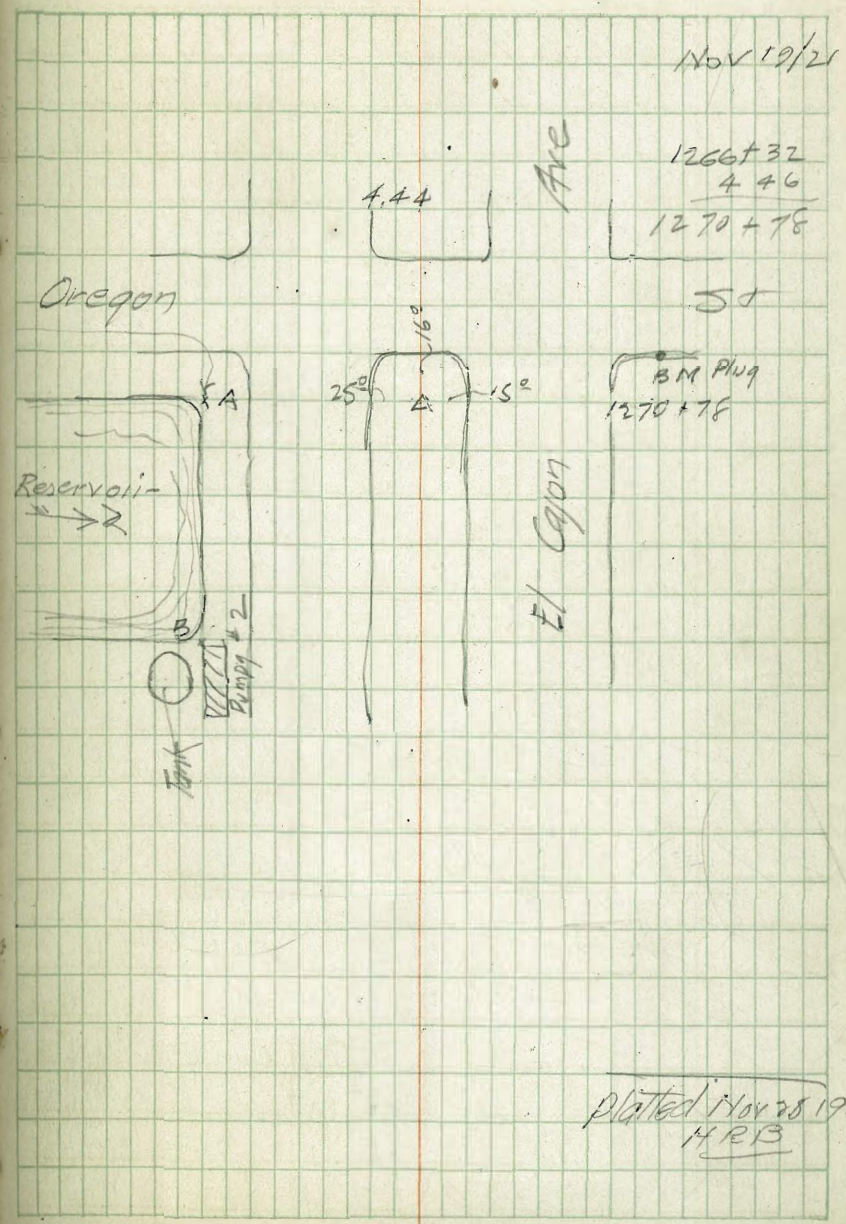 Nov 19/21
1266+32
4 46
1270+78
Ave
4.44
Oregon
St
16º
25º
15º
A
BM Plug
1270+78
Reservoir
El Cajon
B
Pump #2
Tank
platted Nov 28 19
HRB